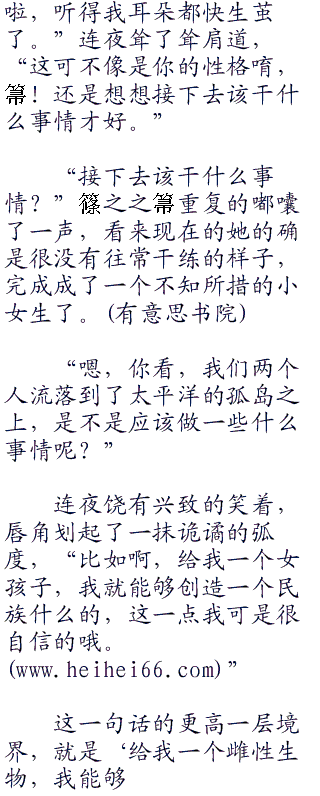 啦，听得我耳朵都快生茧
了。”连夜耸了耸肩道，
“这可不像是你的性格唷，
箒！还是想想接下去该干什
么事情才好。”
“接下去该干什么事
情？”篠之之箒重复的嘟囔
了一声，看来现在的她的确
是很没有往常干练的样子，
完成成了一个不知所措的小
女生了。(有意思书院)
“嗯，你看，我们两个
人流落到了太平洋的孤岛之
上，是不是应该做一些什么
事情呢？”
连夜饶有兴致的笑着，
唇角划起了一抹诡谲的弧
度，“比如啊，给我一个女
孩子，我就能够创造一个民
族什么的，这一点我可是很
自信的哦。
(www.heihei66.com)”
这一句话的更高一层境
界，就是‘给我一个雌性生
物，我能够